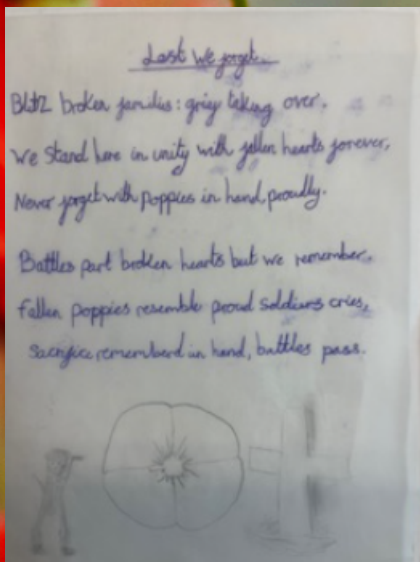 Lest We forget...
Blitz broken families: grief taking over,
We stand here in unity with fallen hearts forever,
Never forget with poppies in hand, proudly.
Battles part broken hearts but we remember,
Fallen poppies resemble proud soldiers cries,
Sacrifice rememberd in hand, battles pass.